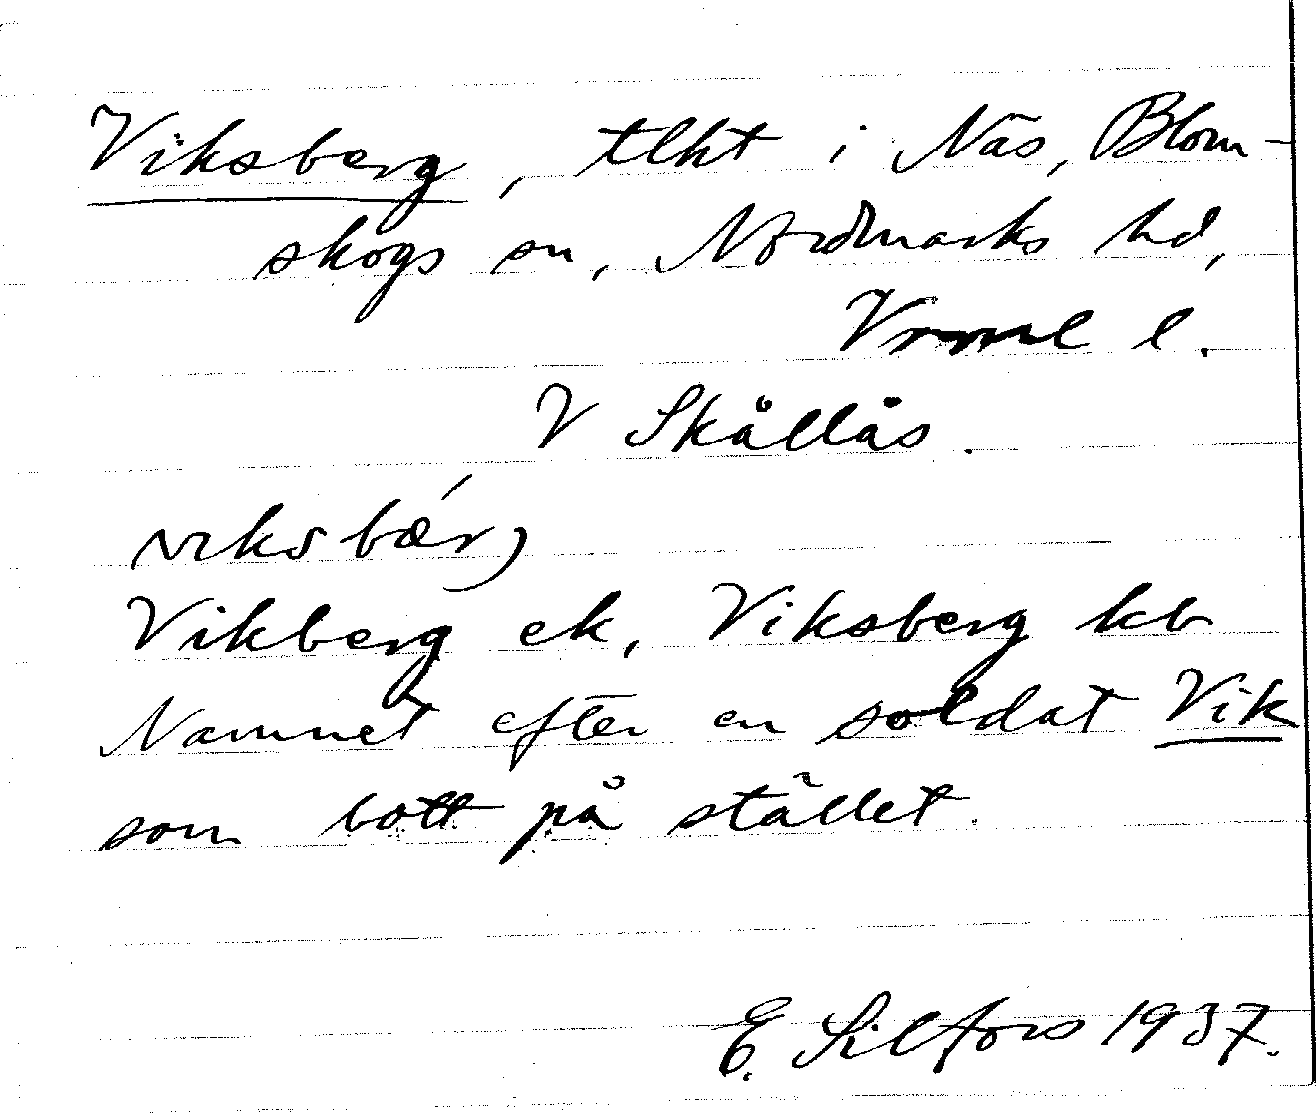 Viksberg, tlht i Näs, Blom-
skogs sn, Nordmarks hd,
Vrml l.
V Skållås.
viksbǽrj
Vikberg ek, Viksberg kb
Namnet efter en soldat Vik
som bott på stället.
E. Silfors 1937.